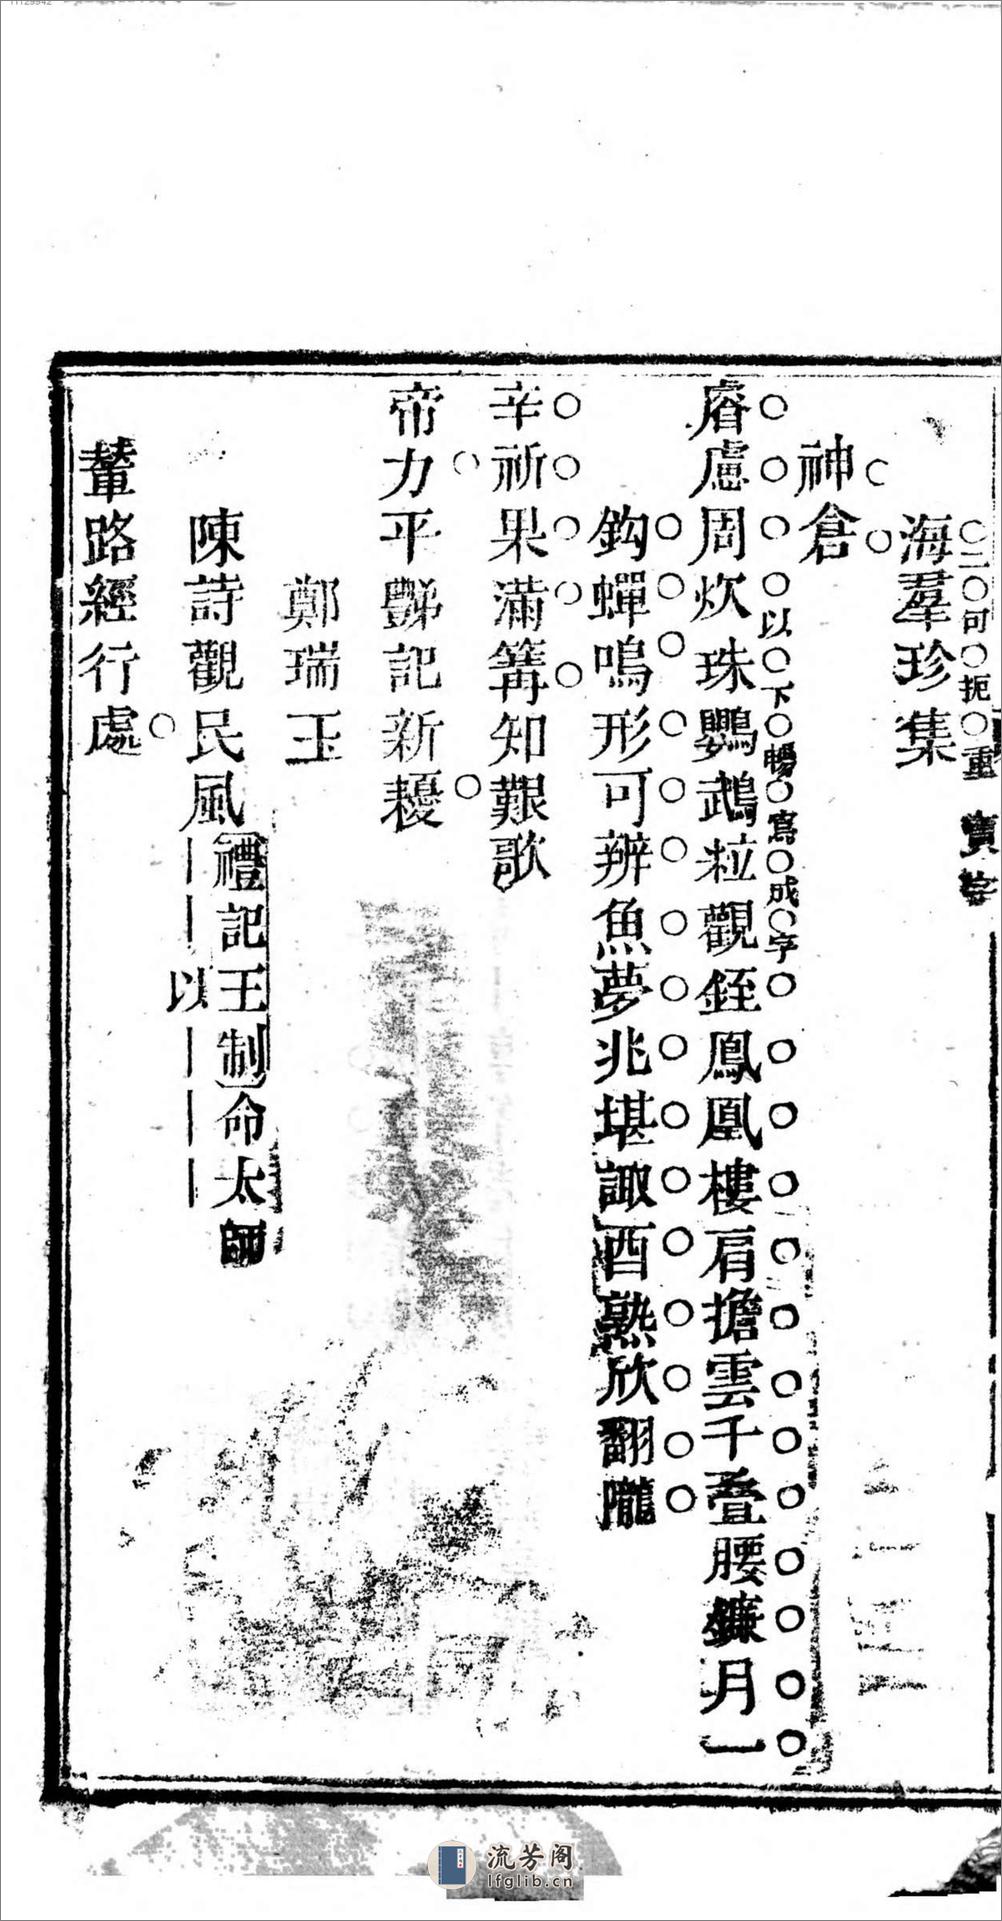 海羣珍集
二可扼重寶字
神倉
睿慮周炊珠鸚鵡粒觀銍鳳凰樓肩擔雲千疊腰鐮月一
以下暢寫成字
鈎蟬鳴形可辨魚夢兆堪諏酉熟欣翻隴
辛祈果滿篝知艱歌
帝力平豒記新耰
鄭瑞玉
陳詩觀民風禮記王制命太師
以
輦路經行處
流芳阁
lfglib.cn